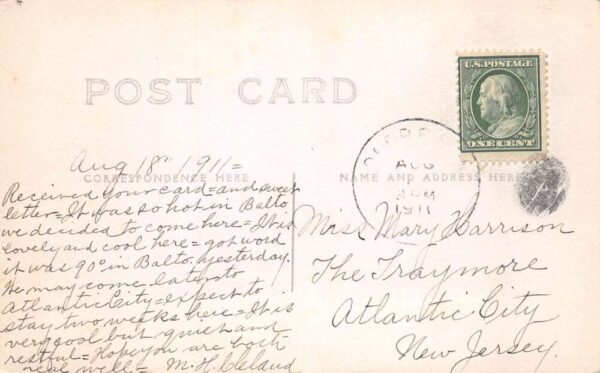 POST CARD
U.S. POSTAGE
ONE CENT
AUG
3 PM
1911
CORRESPONDENCE HERE
NAME AND ADDRESS HERE
Aug 18" 1911=
Received your card=and sweet
letter=It was so hot in Balto
we decided to come here=It is
lovely and cool here=got word
it was 90° in Balto. yesterday.
We may come later to
Atlantic City=expect to
stay two weeks here=It is
very cool but quiet and
restful=Hope you are both
real well= M.H. Cleland
Miss Mary Harrison
The Traymore
Atlantic City
New Jersey.